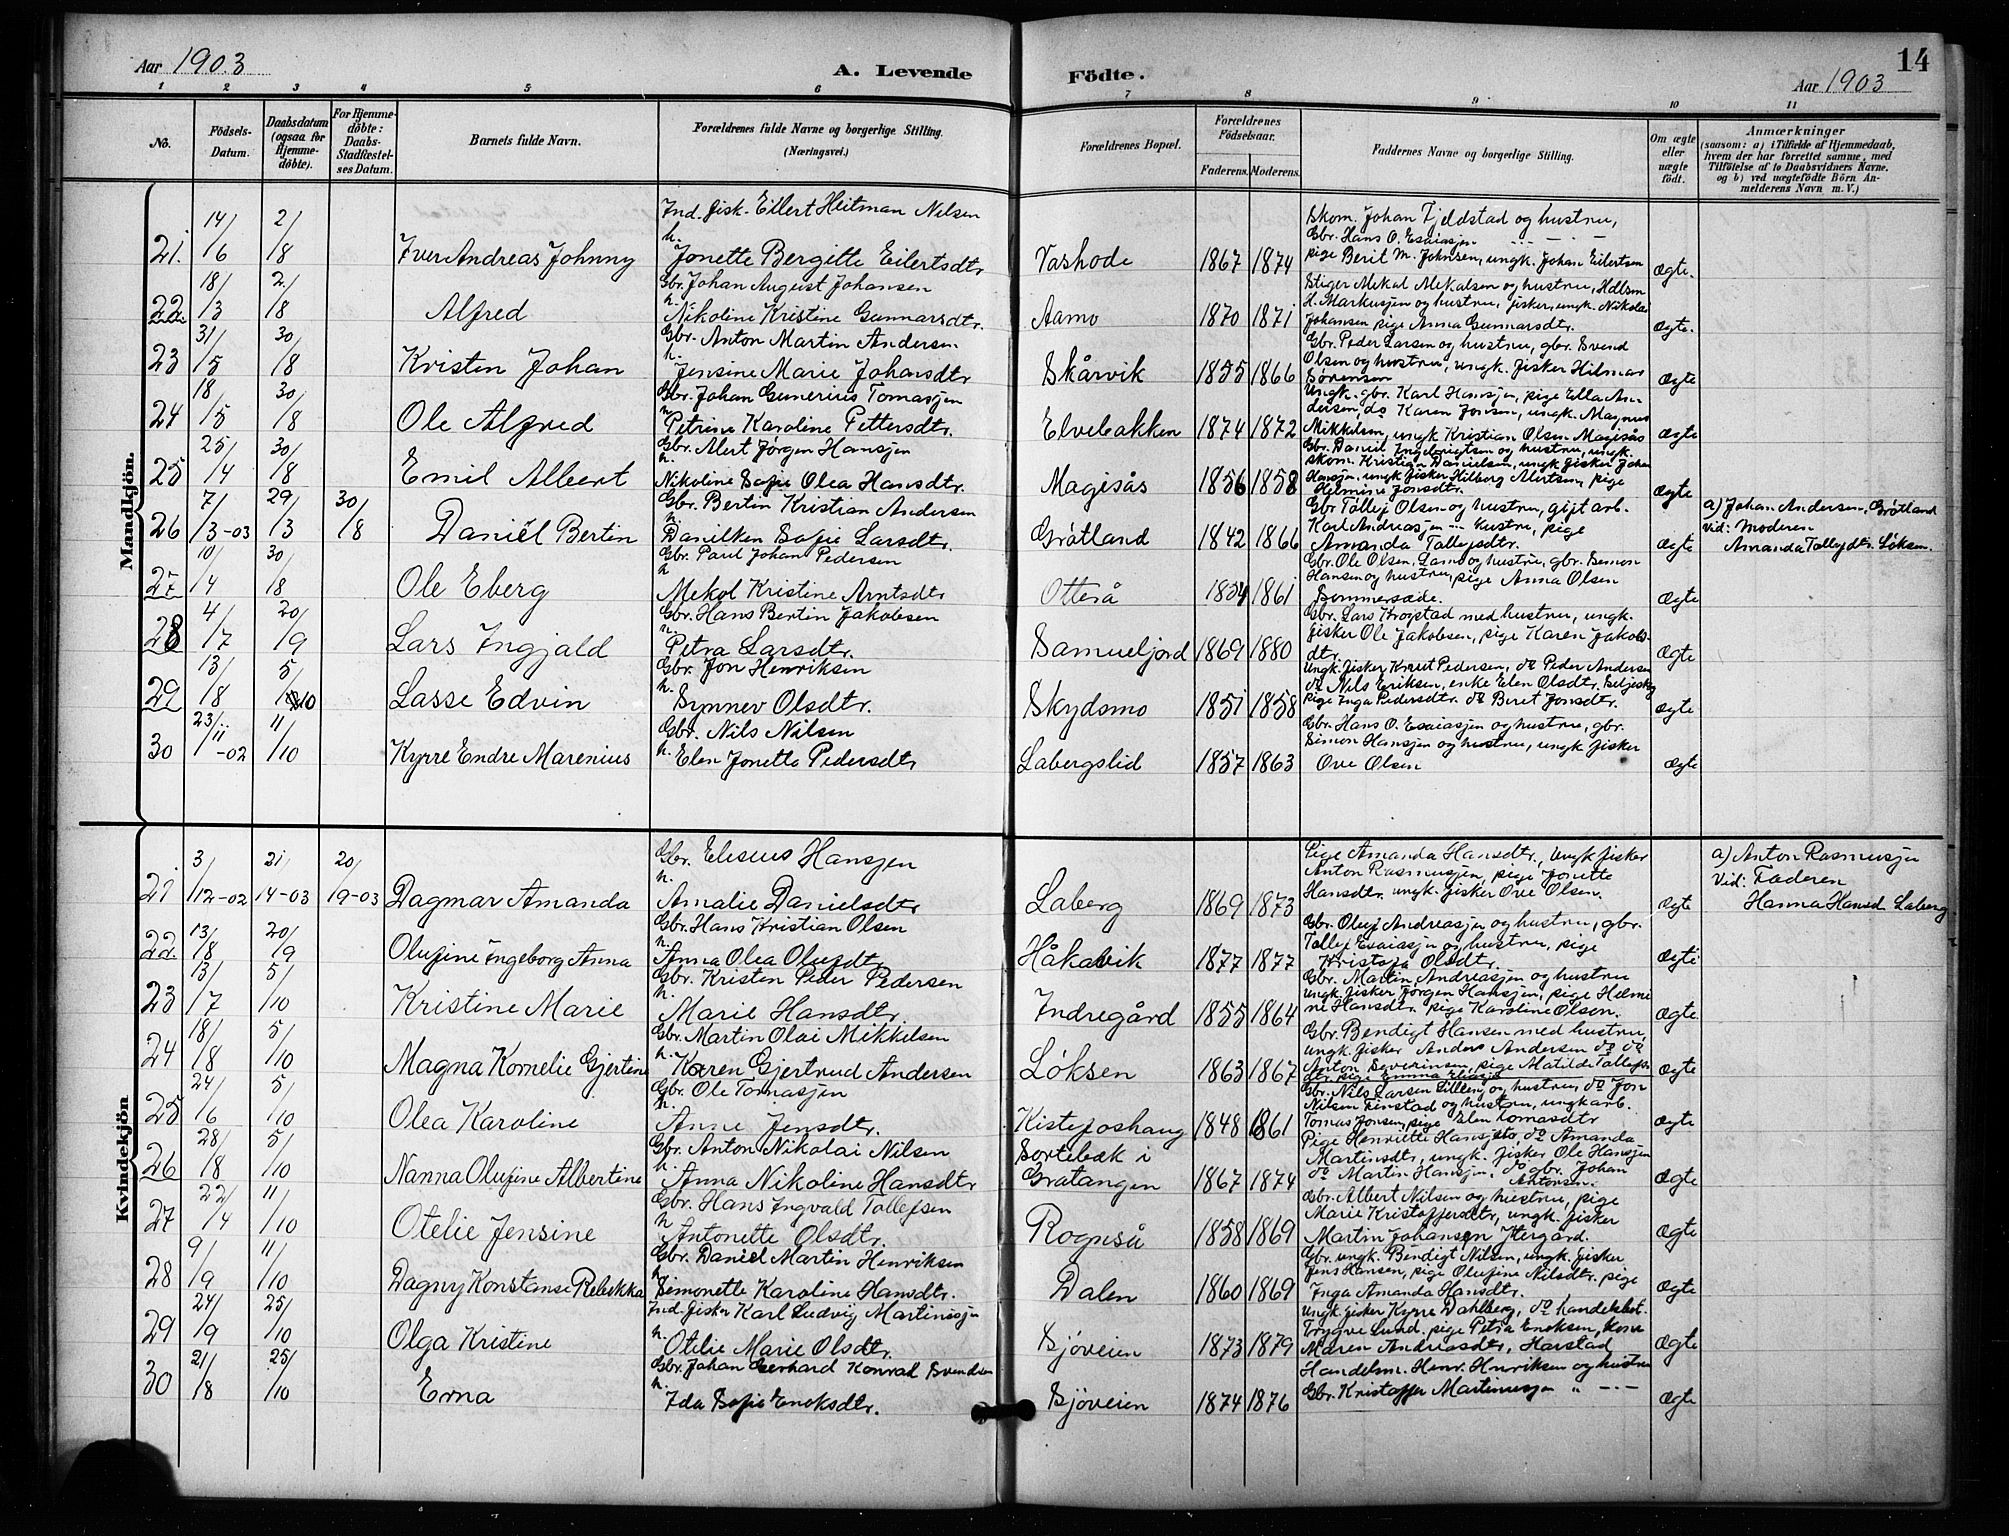 Aar 1903
A. Levende
Födte.
14
Aar 1903
1 2 3 4 5 6 7 8 9 10 11
No.
Födsels-Datum.
Daabsdatum (ogsaa for Hjemme-döbte).
For Hjemme-döbte: Daabs-Stadfæstel-ses Datum.
Barnets fulde Navn.
Forældrenes fulde Navne og borgerlige Stilling. (Næringsvei.)
Forældrenes Bopæl.
Forældrenes Födselsaar.
Faderens. Moderens.
Faddernes Navne og borgerlige Stilling.
Om ægte eller uægte födt.
Anmærkninger (saasom: a) i Tilfælde af Hjemmedaab, hvem der har forrettet samme, med Tilföielse af to Daabsvidners Navne. og b) ved uægtefödte Börn An-melderens Navn m. V.)
Mandkjön.
21. 14/6 2/8 Iver Andreas Johnny
Ind. fisk. Eilert Heitman Nilsen
h. Jonette Bergitte Eilertsdtr
Vashode 1867 1874
Skom. Johan Fjeldstad og hustru,
Gbr. Hans O. Esaiasjen
pige Berit M. Johnsen, ungk. Johan Eilertsen
Ægte.
22. 18/3 2/8 Alfred
Gbr. Johan August Johansen
h. Nikoline Kristine Gunnarsdtr.
Aamo 1870 1871
Stiger Mekal Mekalsen og hustru,
H. Markusjen og hustru, fisker, ungk. Nikolai
Johansen pige Anna Gunnarsdtr.
Ægte.
23 31/5 30/8 Kristen Johan
Gbr. Anton Martin Andersen.
h. Jensine Marie Johansdtr
Skårvik 1855 1866
Gbr. Peder Larsen og hustru, gbr. Svend
Olsen og hustru, ungk. fisker Hilmar
Sørensen
Ægte
24 18/5 30/8 Ole Alfred
Gbr. Johan Gunerius Tomasjen
h Petrine Karoline Pettersdtr.
Elvebakken 1874 1872
Ungk. gbr. Karl Hansjen, pige Ella An-
dersen, do Karen Jonsen, ungk. Magnus
Mikkelsen, ungk Kristian Olsen Magisås
Ægte
25 25/4 30/8 Emil Albert
Gbr. Alert Jørgen Hansjen
h. Nikoline Sofie Olea Hansdtr.
Magisås 1856 1858
Gbr. Daniel Ingebrigtsen og hustru, ungk.
skom. Kristian Danielsen, ungk fisker Johan
Hansjen, ungk fisker Hilberg Alertsen, pige
Helmine Jonsdtr.
Ægte
26 7/3-03 29/3 30/8 Daniël Bertin
Gbr. Bertin Kristian Andersen
h. Danilken Sofie Larsdtr.
Gråtland 1842 1866
Gbr Tollef Olsen og hustru, gift arb.
Karl Andreasjen hustru, pige
Amanda Tollefsdtr.
Ægte
a) Johan Andersen, Gråtland
Vid: Moderen
Amanda Tollefsdtr. Løksen.
27 10/4 30/8 Ole Eberg
Gbr. Paul Johan Pedersen
h Mekol Kristine Arntsdtr
Otterå 1854 1861
Gbr. Ole Olsen, Lamo og hustru, gbr. Simon
Hansen og hustru, pige Anna Olsen
Sommersæde.
Ægte
28 4/7 20/9 Lars Ingjald
Gbr. Hans Bertin Jakobsen
h Petra Larsdtr.
Samueljord 1869 1880
Gbr. Lars Krogstad med hustru, ungk.
fisker Ole Jakobsen, pige Karen Jakobs-
dtr.
Ægte
29 13/8 5/10 Lasse Edvin
Gbr. Jon Henriksen
h. Synnev Olsdtr.
Skydsmo 1851 1858
Ungk. fisker Knut Pedersen, do Peder Andersen
do Nils Eriksen, enke Elen Olsdtr.
Pige Inga Pedersdtr. do Beret Jonsdtr.
Ægte
30 23/11-02 11/10 Kyrre Endre Marenius
Gbr. Nils Nilsen
h. Elen Jonette Pedersdtr
Labergslid 1857 1863
Gbr. Hans O. Esaiasjen og hustru, gbr.
Simon Hansjen og hustru, ungk fisker
Ove Olsen
Ægte
Kvindekjön
21 3/12-02 21/4-03 20/9-03 Dagmar Amanda
Gbr. Eliseus Hansjen
h. Amalie Danielsdtr
Laberg 1869 1873
Pige Amanda Hansdtr, ungk fisker
Anton Rasmusjen, pige Jonette
Hansdtr. ungk. fisker Ove Olsen.
Ægte
a) Anton Rasmusjen
Vid: Faderen
Hanna Hansd. Laberg
22. 13/8 20/9 Olufine Ingeborg Anna
Gbr. Hans Kristian Olsen
h. Anna Olea Olufsdtr
Håkavik 1877 1877
Gbr. Oluf Andreasjen og hustru, gbr.
Tollef Esaiasjen og hustru, pige
Kristine Olsdtr.
Ægte
23 13/7 5/10 Kristine Marie
Gbr. Kristen Peder Pedersen
h. Marie Hansdtr.
Indregård 1855 1864
Gbr. Martin Andreasjen og hustru
ungk. fisker Jørgen Hansjen, pige Helmi
ne Hansdtr. pige Karoline Olsen.
Ægte
24 18/8 5/10 Magna Kornelie Gjertine
Gbr. Martin Olai Mikkelsen
h. Karen Gjertrud Andersen
Løksen 1863 1867
Gbr. Bendigt Hansen med hustru,
ungk. fisker Anders Andersen do do
Anton Severinsen, pige Matilde
Ægte
25 24/6 5/10 Olea Karoline
Gbr. Ole Tomasjen
h. Anne Jensdtr.
Kistefoshaug 1848 1861
Gbr. Nils Larsen Lilleng og hustru, do Jon
Nilsen Finstad og hustru, ungk arb.
Tomas Jonsen, pige Elen Tomasdtr
Ægte
26 28/8 5/10 Nanna Olufine Albertine
Gbr. Anton Nikolai Nilsen
h. Anna Nikoline Hansdtr
Sortebæk i
Gratangen 1867 1874
Pige Henriette Hansjen, do Amanda
Martinsdtr, ungk. fisker Ole Hansjen
do Martin Hansjen. do gbr. Johan
Antonsen.
Ægte
27 22/4 11/10 Otelie Jensine
Gbr. Hans Ingvald Tollefsen
h Antonette Olsdtr.
Rognså 1858 1869
Gbr. Albert Nilsen og hustru, pige
Marie Kristoffersdtr, ungk. fisker
Martin Johansen Ytergård.
Ægte
28 9/9 11/10 Dagny Konstanse Rebekka
Gbr. Daniel Martin Henriksen
h Simonette Karoline Hansdtr.
Dalen 1860 1869
Gbr. ungk. Bendigt Nilsen, ungk. fisker
Jens Hansen, pige Olufine Nilsdtr. pige
Inga Amanda Hansdtr.
Ægte
29 24/9 25/10 Olga Kristine
Ind. fisker Karl Ludvig Martinusjen
h. Otilie Marie Olsdtr.
Sjøveien 1873 1879
Ungk. fisker Kyrre Dahlberg, do handelsbet.
Trygve Lund. pige Petra Enoksen, kone
Maren Andreasdtr, Harstad
Ægte
30 21/8 25/10 Erna
Gbr. Johan Gerhard Konrad Svendsen
h. Ida Sofie Enoksdtr.
Sjøveien 1874 1876
Handelsm. Henr. Henriksen og hustru
Gbr. Kristoffer Martinusjen " - . -
Ægte